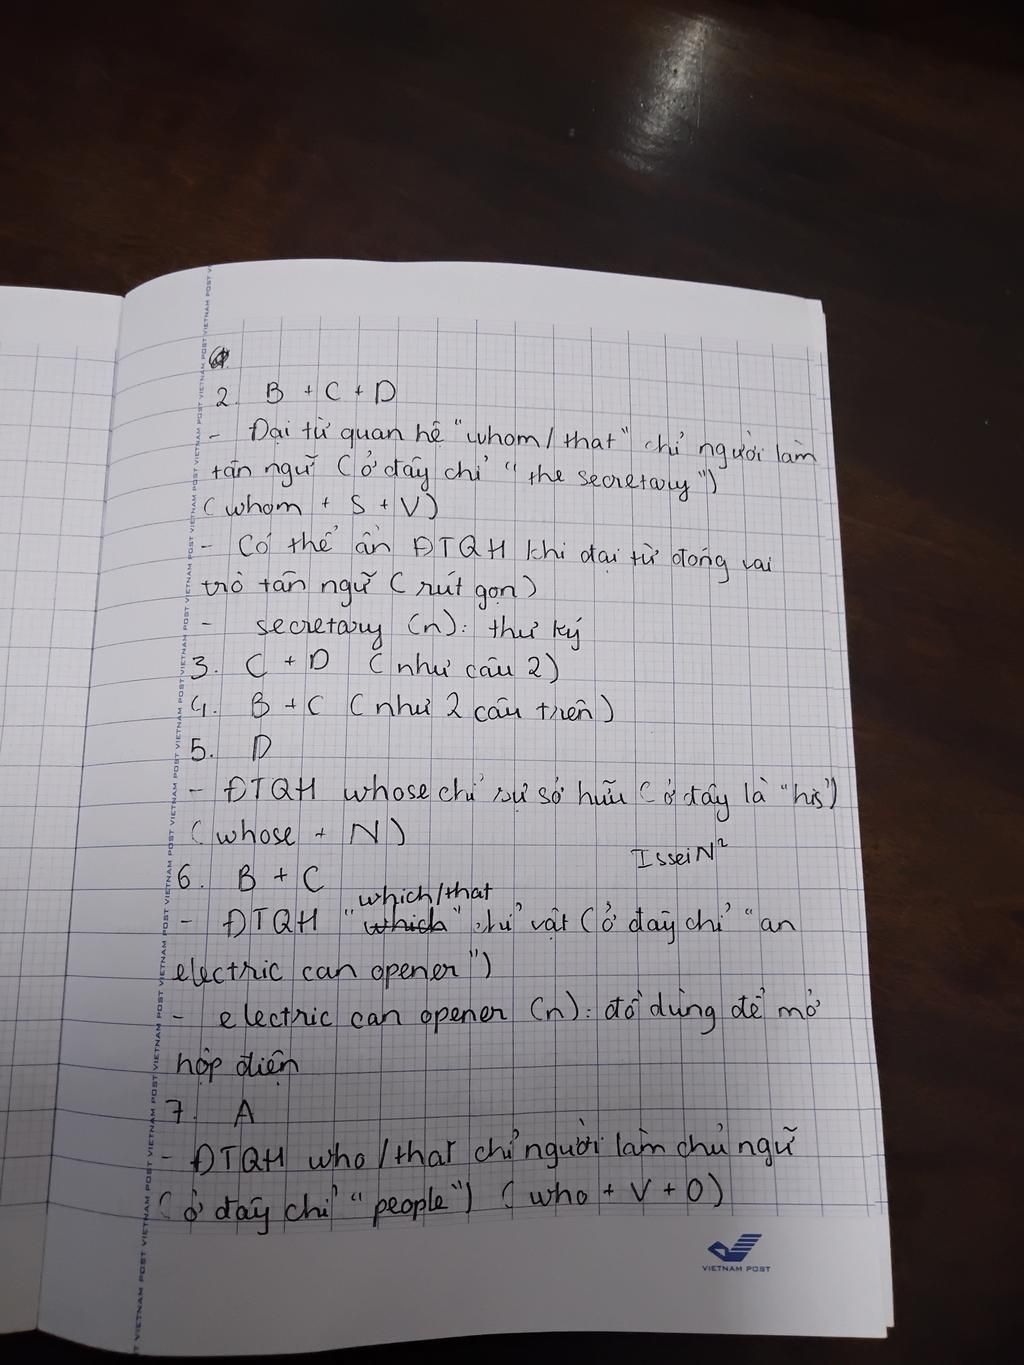 2. B + C + D
- Đại từ quan hệ "whom/that" chỉ người làm
tân ngữ (ở đây chỉ "the secretary")
(whom + S + V)
- Có thể ẩn ĐTQH khi đại từ đóng vai
trò tân ngữ (rút gọn)
- secretary (n): thư ký
3. C + D (như câu 2)
4. B + C (như 2 câu trên)
5. D
- ĐTQH whose chỉ sự sở hữu (ở đây là "his")
(whose + N)
IsseiN²
6. B + C
which/that
- ĐTQH "which" chỉ vật (ở đây chỉ "an
electric can opener")
- electric can opener (n): đồ dùng để mở
hộp điện
7. A
- ĐTQH who/that chỉ người làm chủ ngữ
(ở đây chỉ "people") (who + V + O)
VIETNAM POST
VIETNAM POST VIETNAM POST VIETNAM POST VIETNAM POST VIETNAM POST VIETNAM POST VIETNAM POST VIETNAM POST VIETNAM POST